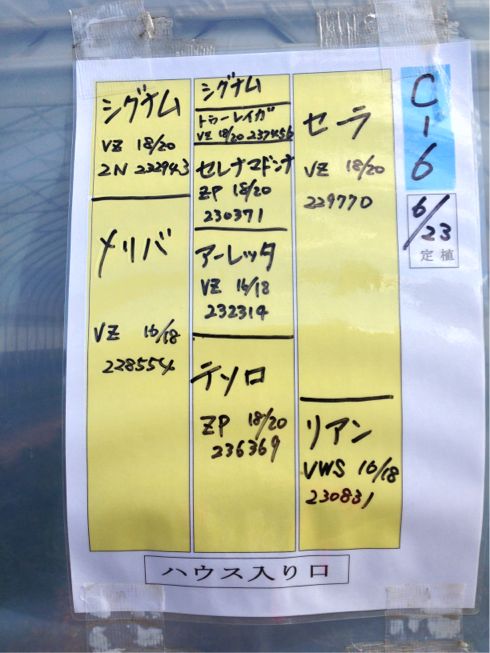 シグナム
VZ 18/20
2N 232943
メリバ
VZ 16/18
228554
シグナム
トゥーレイガ
VZ 18/20 237456
セレナマドンナ
ZP 18/20
230371
アーレッタ
VZ 16/18
232314
テソロ
ZP 18/20
236369
セラ
VZ 18/20
229770
リアン
VWS 16/18
230831
C-6
6/23
定植
ハウス入り口